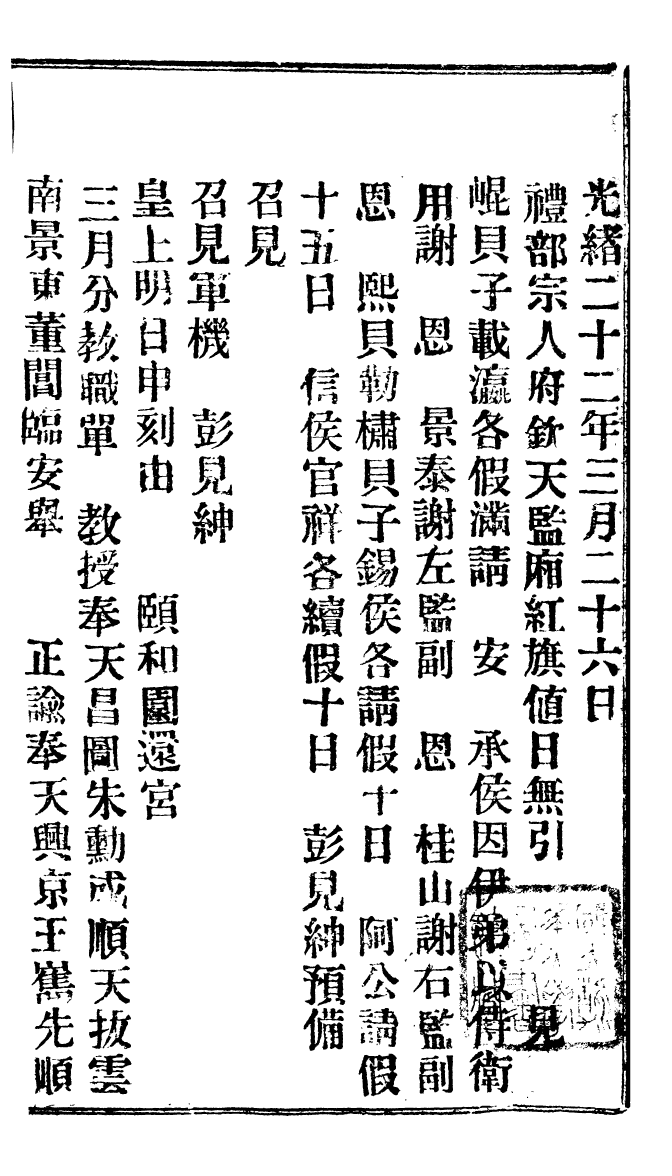 光緒二十二年三月二十六日
禮部宗人府欽天監廂紅旗値日無引　見
崐貝子載瀛各假滿請　安　承侯因伊弟以侍衛
用謝　恩　景泰謝左監副　恩　桂山謝右監副
恩　熙貝勒橚貝子錫侯各請假十日　阿公請假
十五日　信侯官祥各續假十日　彭見紳預備
召見
召見軍機　彭見紳
皇上明日申刻由　頤和園還宮
三月分教職單　教授奉天昌圖朱勳成順天拔雲
南景東董閶臨安舉　正諭奉天興京王雋先順